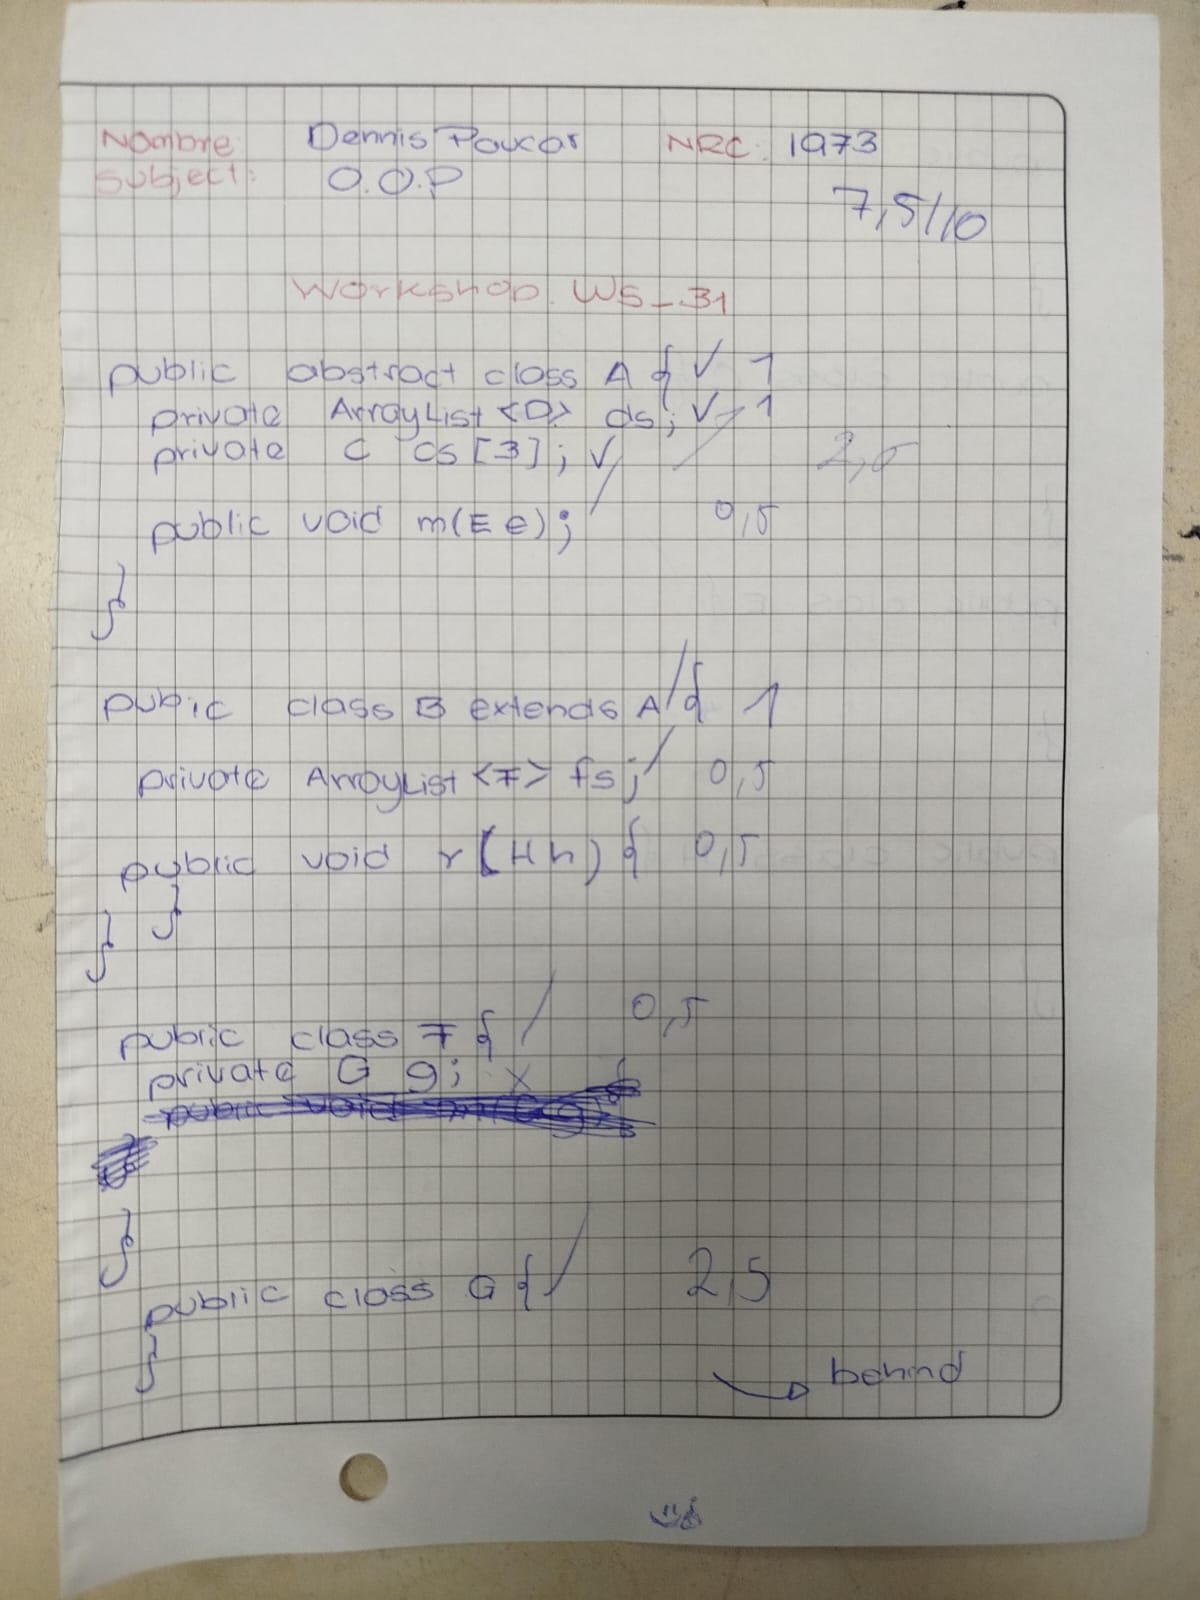 Nombre: Dennis Paucar NRC: 1973
Subject: O.O.P
7,5/10
Workshop. WS_31
public abstract class A { ✓ 1
private ArrayList <D> ds; ✓ 1
private C cs [3]; ✓ 2,5
public void m(E e); 0,5
}
pubic class B extends A { 1
private ArrayList <F> fs; 0,5
public void r (H h) { 0,5
}
}
public class F { 0,5
private G g; x
}
public class G { 2,5
}
behind